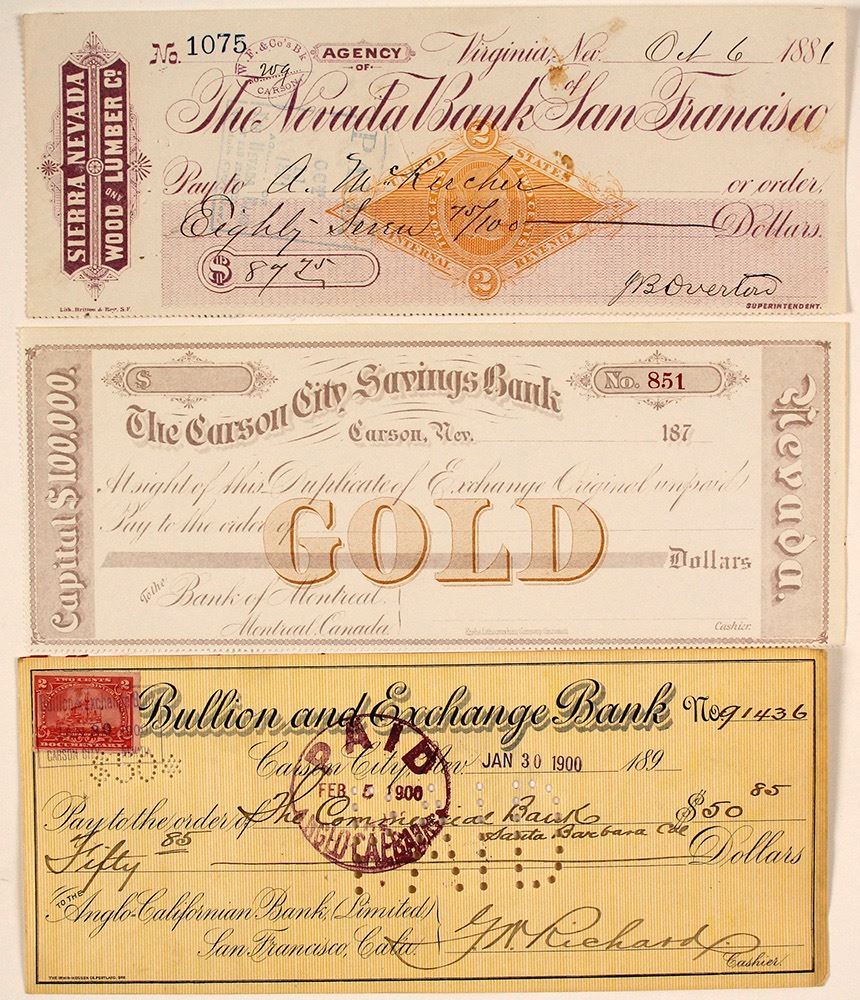 SIERRA NEVADA
WOOD AND LUMBER Co
No. 1075
W. F. & Co's Bk
CARSON
AGENCY
OF
Virginia, Nev. Oct 6 1881
The Nevada Bank of San Francisco
Pay to A. McKercher or order,
UNITED STATES
INTERNAL REVENUE
2
2
Eighty Seven 75/100 Dollars.
$ 87 75
J B Overton
SUPERINTENDENT.
Lith. Britton & Rey. S.F.
Capital $100,000.
$
No. 851
The Carson City Savings Bank
Carson, Nev. 187
At sight of this Duplicate of Exchange Original unpaid
Pay to the order of
GOLD
Dollars
To the Bank of Montreal.
Montreal, Canada.
Cashier.
Nevada.
TWO CENTS
2 2
DOCUMENTARY
CARSON CITY
Bullion and Exchange Bank No 91436
Carson City, Nev. JAN 30 1900 189
PAID
FEB 5 1900
ANGLO CAL BANK
Pay to the order of The Commercial Bank $50 85
Santa Barbara Cal
Fifty 85 Dollars
PAID
TO THE Anglo-Californian Bank, (Limited)
San Francisco, Cala.
G W Richard
Cashier.